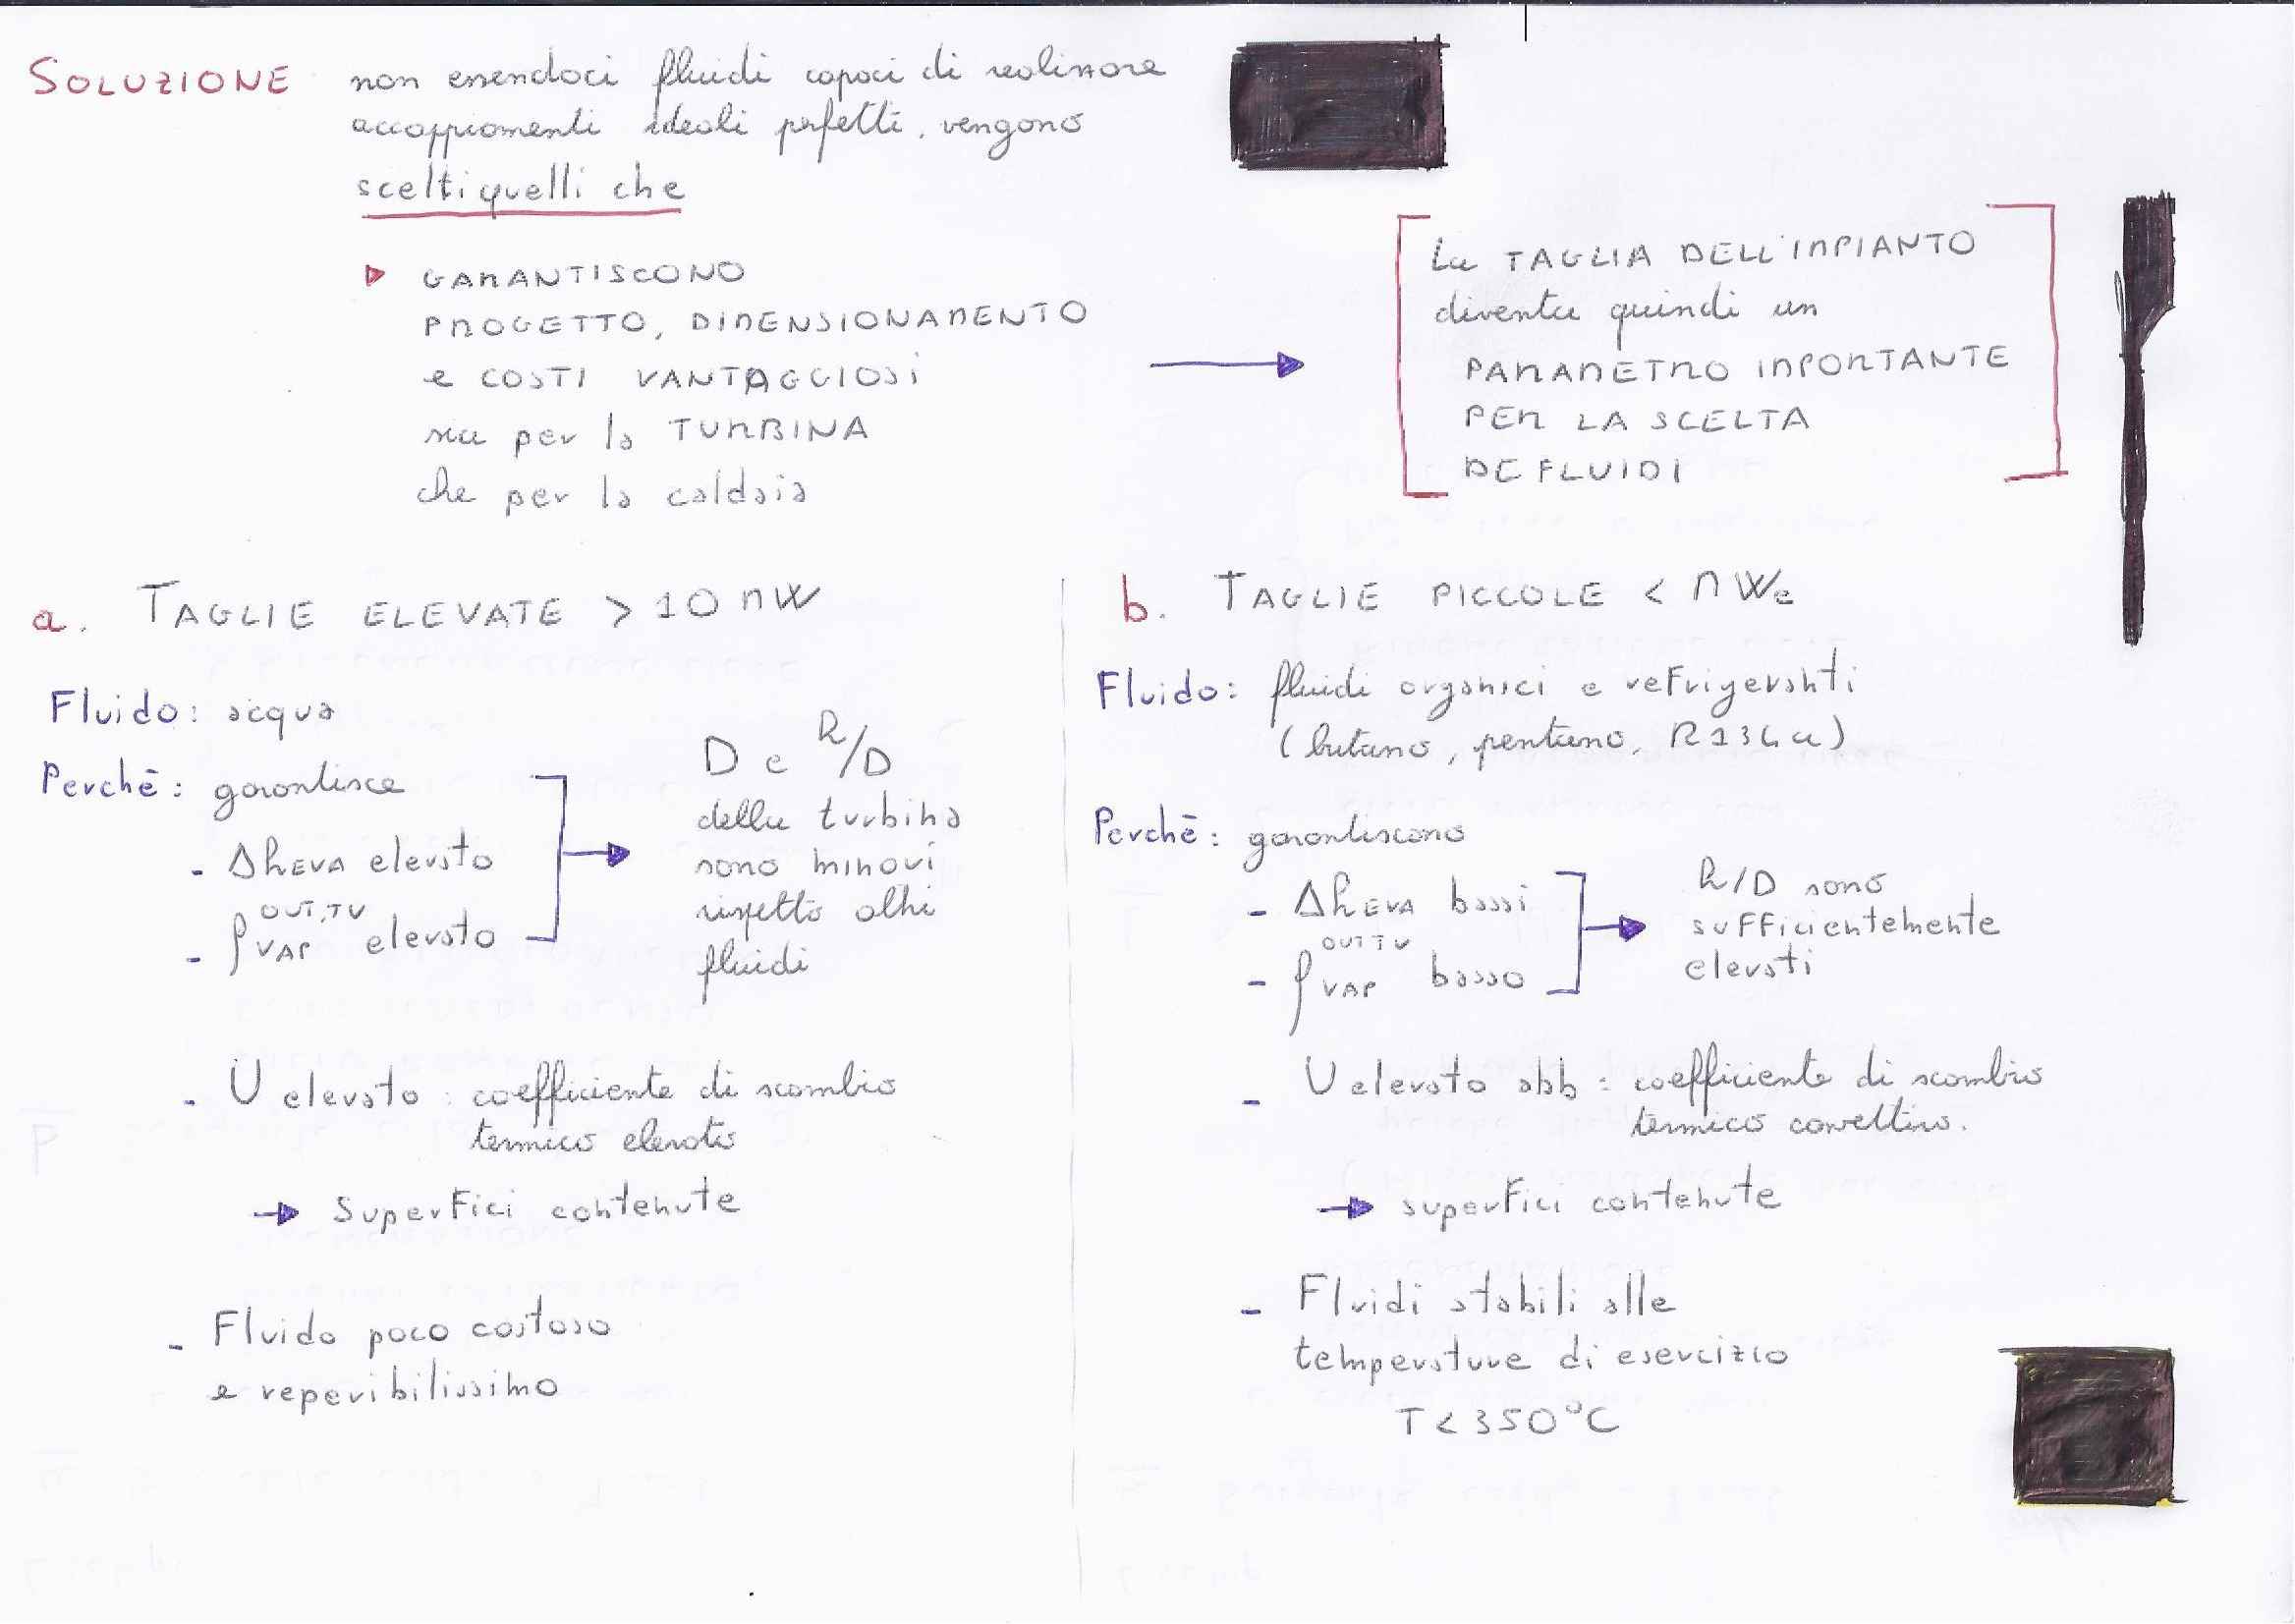 SOLUZIONE non essendoci fluidi capaci di realizzare
accoppiamenti ideali perfetti, vengono
scelti quelli che
GARANTISCONO
PROGETTO, DIMENSIONAMENTO
e COSTI VANTAGGIOSI
sia per la TURBINA
che per la caldaia
La TAGLIA DELL'IMPIANTO
diventa quindi un
PARAMETRO IMPORTANTE
PER LA SCELTA
DE FLUIDI
a. TAGLIE ELEVATE > 10 MW
Fluido: acqua
Perchè: garantisce
- ΔhEVA elevato
OUT,TU
- ρVAP elevato
D e h/D
della turbina
sono minori
rispetto altri
fluidi
- U elevato : coefficiente di scambio
termico elevato
→ Superfici contenute
- Fluido poco costoso
e reperibilissimo
b. TAGLIE PICCOLE < MWe
Fluido: fluidi organici e refrigeranti
(butano, pentano, R134a)
Perchè: garantiscono
- ΔhEVA bassi
OUT TU
- ρVAP basso
h/D sono
sufficientemente
elevati
- U elevato abb : coefficiente di scambio
termico convettivo.
→ superfici contenute
- Fluidi stabili alle
temperature di esercizio
T < 350°C